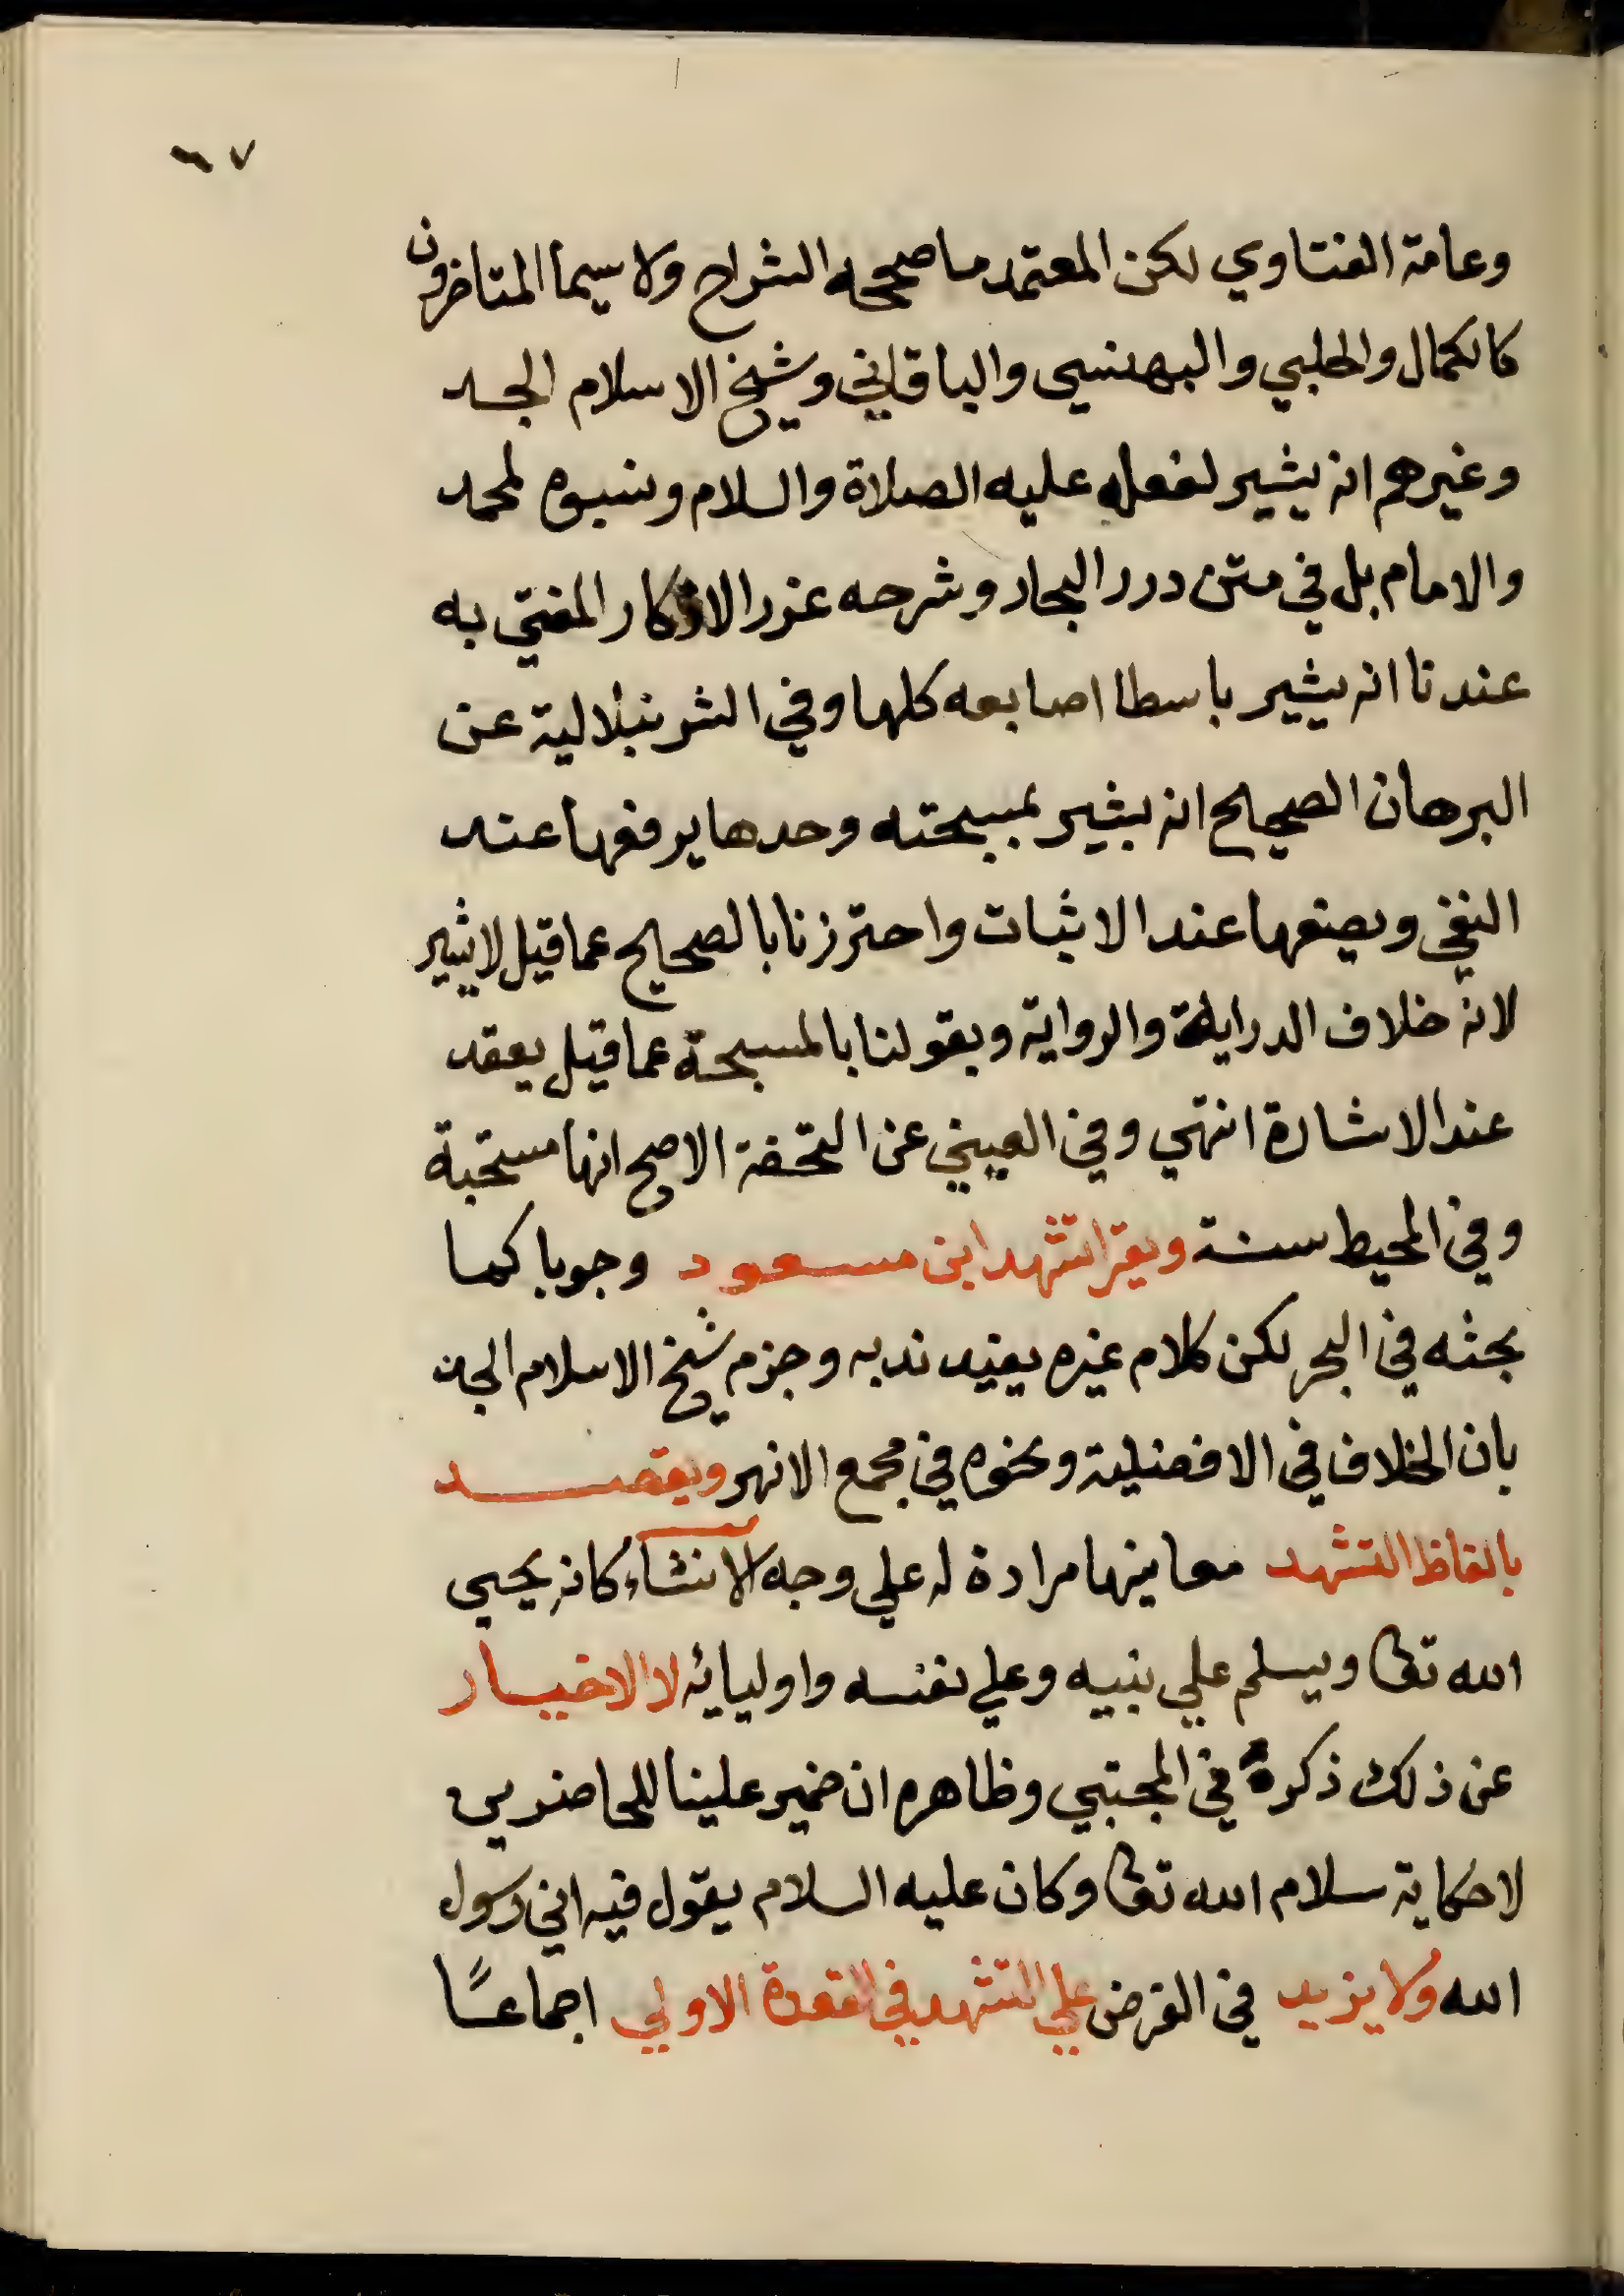 ٦٧
وعامة الفتاوي لكن المعتمد ما صححه الشراح ولا سيما المتاخرون
كالكمال والحلبي والبهنسي والباقاني وشيخ الاسلام الجد
وغيرهم انه يشير لفعله عليه الصلاة والسلام ونسبوه لمحمد
والامام بل في متن درر البحار وشرحه غرر الاذكار المفتي به
عندنا انه يشير باسطا اصابعه كلها وفي الشرنبلالية عن
البرهان الصحيح انه يشير بمسبحته وحدها يرفعها عند
النفي ويضعها عند الاثبات واحترزنا بالصحيح عما قيل لا يشير
لانه خلاف الدراية والرواية وبقولنا بالمسبحة عما قيل يعقد
عند الاشارة انتهي وفي العيني عن التحفة الاصح انها مستحبة
وفي المحيط سنة ويقرا تشهد ابن مسعود وجوبا كما
بحثه في البحر لكن كلام غيره يفيد ندبه وجزم شيخ الاسلام الجد
بان الخلاف في الافضلية ونحوه في مجمع الانهر ويقصد
بالفاظ التشهد معانيها مرادة له علي وجه الانشاء كانه يحيي
الله تعالى ويسلم علي نبيه وعلي نفسه واوليائه لا الاخبار
عن ذلك ذكره في المجتبي وظاهره ان ضمير علينا للحاضرين
لا حكاية سلام الله تعالى وكان عليه السلام يقول فيه اني رسول
الله ولا يزيد في الفرض علي التشهد في القعدة الاولي اجماعًا